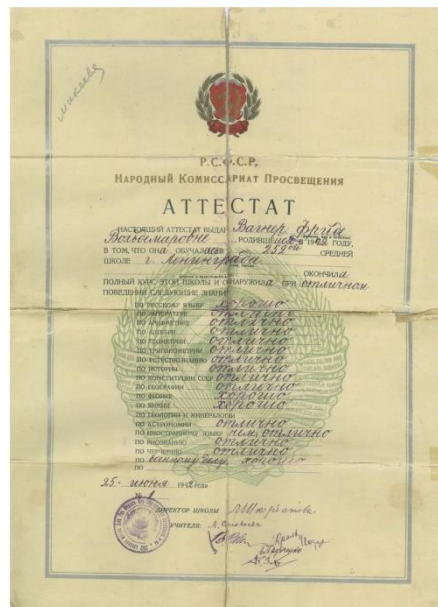 Р.С.Ф.С.Р.
НАРОДНЫЙ КОМИССАРИАТ ПРОСВЕЩЕНИЯ
АТТЕСТАТ
НАСТОЯЩИЙ АТТЕСТАТ ВЫДАН Вагнер Фрида
Вольдемаровне РОДИВШЕЙСЯ В ГОДУ,
В ТОМ, ЧТО ОНА ОБУЧАЛАСЬ В 252ой СРЕДНЕЙ
ШКОЛЕ г. Ленинграда
ОКОНЧИЛА
ПОЛНЫЙ КУРС ЭТОЙ ШКОЛЫ И ОБНАРУЖИЛА ПРИ отличном
ПОВЕДЕНИИ СЛЕДУЮЩИЕ ЗНАНИЯ:
ПО РУССКОМУ ЯЗЫКУ хорошо
ПО ЛИТЕРАТУРЕ отлично
ПО АРИФМЕТИКЕ отлично
ПО АЛГЕБРЕ отлично
ПО ГЕОМЕТРИИ отлично
ПО ТРИГОНОМЕТРИИ отлично
ПО ЕСТЕСТВОЗНАНИЮ отлично
ПО ИСТОРИИ отлично
ПО КОНСТИТУЦИИ СССР отлично
ПО ГЕОГРАФИИ отлично
ПО ФИЗИКЕ хорошо
ПО ХИМИИ хорошо
ПО ГЕОЛОГИИ И МИНЕРАЛОГИИ
ПО АСТРОНОМИИ отлично
ПО ИНОСТРАННОМУ ЯЗЫКУ нем. отлично
ПО РИСОВАНИЮ отлично
ПО ЧЕРЧЕНИЮ отлично
ПО военному делу хорошо
ПО
25. июня 1942 года
№ 1
ДИРЕКТОР ШКОЛЫ
УЧИТЕЛЯ: